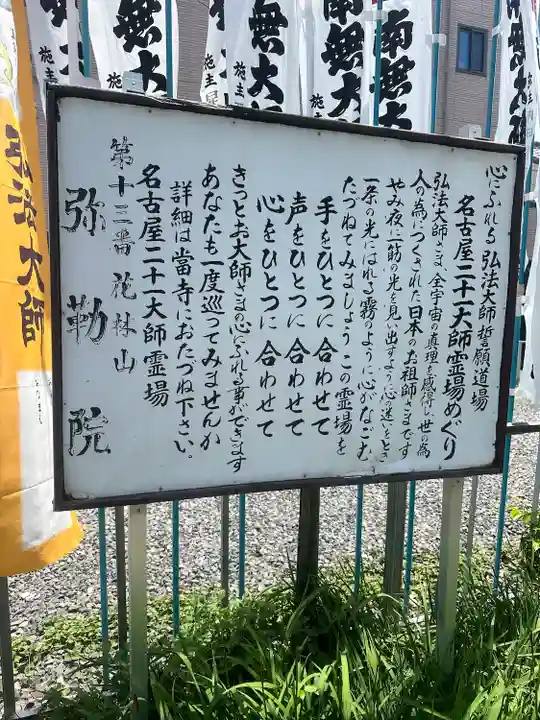 心にふれる 弘法大師誓願道場
名古屋二十一大師霊場めぐり
弘法大師さま 全宇宙の真理を感得し 世の為
人の為につくされた日本のお祖師さまです
やみ夜に一筋の光を見い出すよう心の迷いをとき
一条の光にはれる霧のように心がなごむ
たづねてみましょうこの霊場を
手をひとつに合わせて
声をひとつに合わせて
心をひとつに合わせて
きっとお大師さまの心にふれる事ができます
あなたも一度巡ってみませんか
詳細は當寺におたづね下さい。
名古屋二十一大師霊場
第十三番 花林山
弥勒院
南無大
南無大
施主
無大
施主
無大
施主
弘法大師